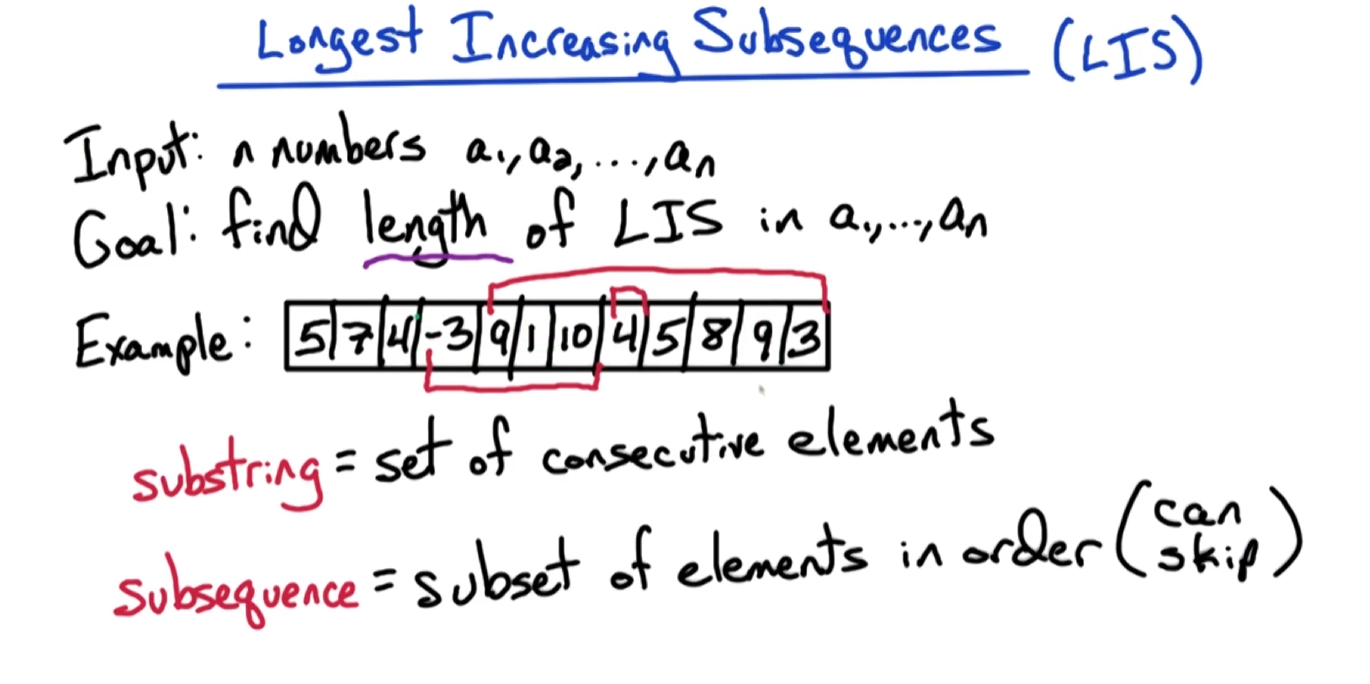 Longest Increasing Subsequences (LIS)
Input: n numbers a₁, a₂, ..., aₙ
Goal: find length of LIS in a₁, ..., aₙ
Example: 5 | 7 | 4 | -3 | 9 | 1 | 10 | 4 | 5 | 8 | 9 | 3
substring = set of consecutive elements
subsequence = subset of elements in order (can skip)